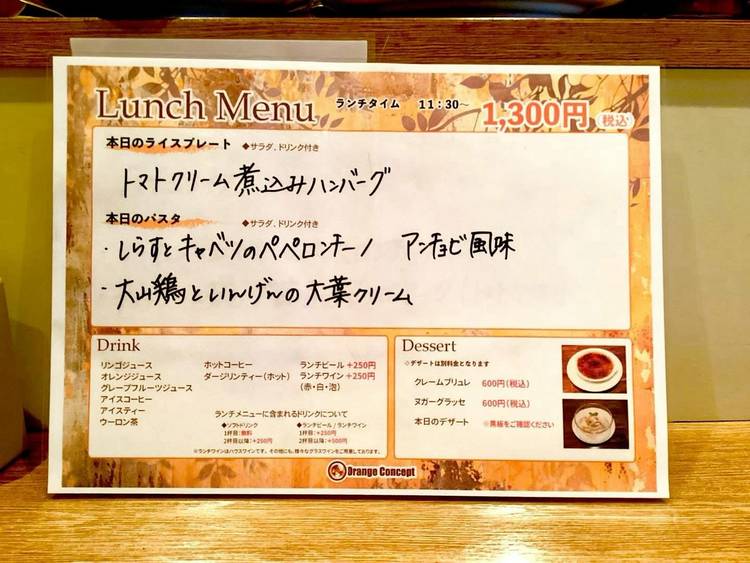 Lunch Menu ランチタイム 11:30～ 1,300円 税込
本日のライスプレート ◆サラダ、ドリンク付き
トマトクリーム煮込みハンバーグ
本日のパスタ ◆サラダ、ドリンク付き
・しらすとキャベツのペペロンチーノ アンチョビ風味
・大山鶏といんげんの大葉クリーム
Drink
リンゴジュース ホットコーヒー ランチビール +250円
オレンジジュース ダージリンティー(ホット) ランチワイン +250円
グレープフルーツジュース (赤・白・泡)
アイスコーヒー
アイスティー
ウーロン茶
ランチメニューに含まれるドリンクについて
◆ソフトドリンク ◆ランチビール/ランチワイン
1杯目:無料 1杯目:+250円
2杯目以降:+250円 2杯目以降:+500円
※ランチワインはハウスワインです。その他にも、様々なグラスワインをご用意しております。
Dessert
※デザートは別料金となります
クレームブリュレ 600円(税込)
ヌガーグラッセ 600円(税込)
本日のデザート ※黒板をご確認ください
Orange Concept